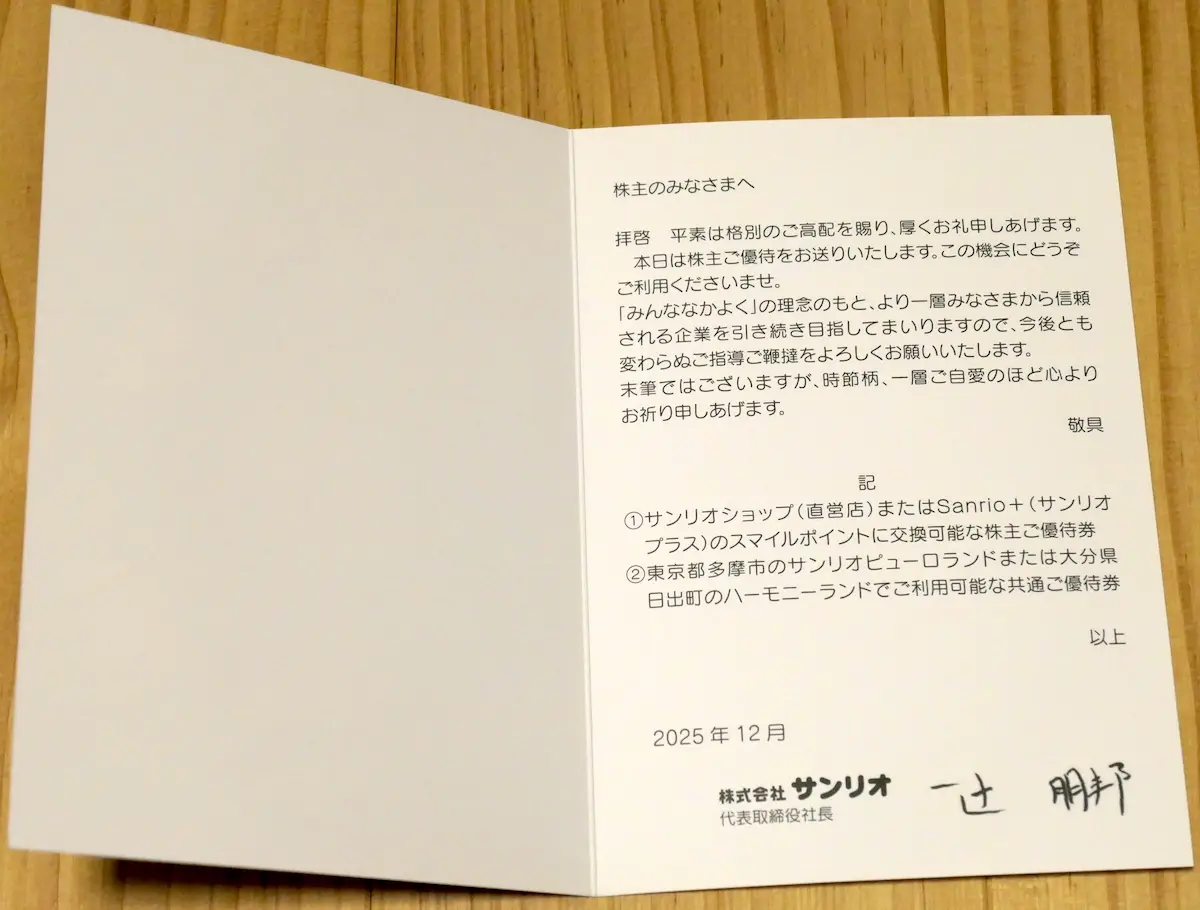 株主のみなさまへ
拝啓　平素は格別のご高配を賜り、厚くお礼申しあげます。
　本日は株主ご優待をお送りいたします。この機会にどうぞ
ご利用くださいませ。
「みんななかよく」の理念のもと、より一層みなさまから信頼
される企業を引き続き目指してまいりますので、今後とも
変わらぬご指導ご鞭撻をよろしくお願いいたします。
末筆ではございますが、時節柄、一層ご自愛のほど心より
お祈り申しあげます。
敬具
記
①サンリオショップ(直営店)またはSanrio＋(サンリオ
プラス)のスマイルポイントに交換可能な株主ご優待券
②東京都多摩市のサンリオピューロランドまたは大分県
日出町のハーモニーランドでご利用可能な共通ご優待券
以上
2025年12月
株式会社 サンリオ
代表取締役社長
一辻 朋邦